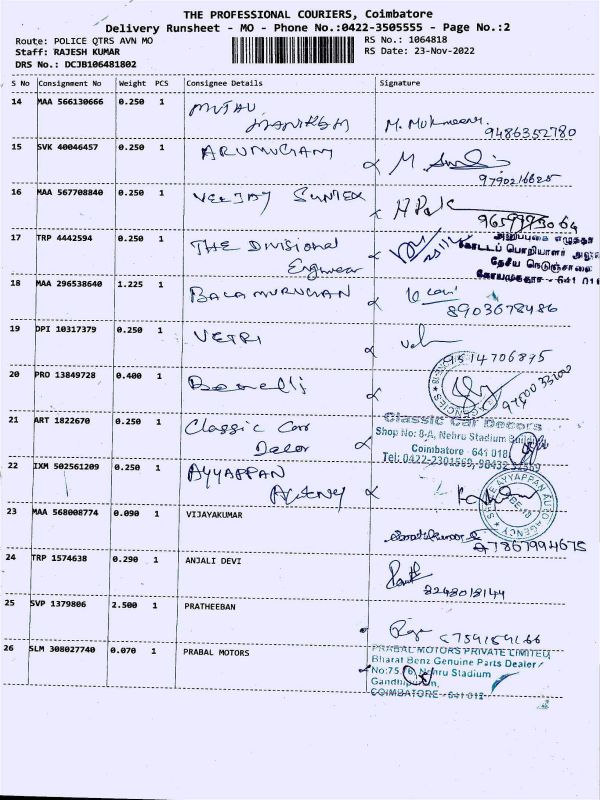 THE PROFESSIONAL COURIERS, Coimbatore
Delivery Runsheet - MO - Phone No.:0422-3505555 - Page No.:2
Route: POLICE QTRS AVN MO RS No.: 1064818
Staff: RAJESH KUMAR RS Date: 23-Nov-2022
DRS No.: DCJB106481802
S No Consignment No Weight PCS Consignee Details Signature
14 MAA 566130666 0.250 1 MUTHU
MANIKAM 9486352780
15 SVK 40046457 0.250 1 ARUMUGAM
9790216625
16 MAA 567708840 0.250 1 VEEJAY SUNTEX
17 TRP 4442594 0.250 1 THE Divisional
Engineer
கோட்டப் பொறியாளர்
தேசிய நெடுஞ்சாலை
18 MAA 296538640 1.225 1 BALAMURUGAN
8903678486
19 DPI 10317379 0.250 1 VETRI
9514706895
20 PRO 13849728 0.400 1 Benelli
21 ART 1822670 0.250 1 Classic Car
Decor
Classic Car Decors
Shop No: 8-A, Nehru Stadium
Coimbatore - 641 018
Tel: 0422-2301569,
22 IXM 502561209 0.250 1 AYYAPPAN
AYYAPPAN AUTO AGENCY
23 MAA 568008774 0.090 1 VIJAYAKUMAR
7867994675
24 TRP 1574638 0.290 1 ANJALI DEVI
8248018144
25 SVP 1379806 2.500 1 PRATHEEBAN
26 SLM 308027740 0.070 1 PRABAL MOTORS
PRABAL MOTORS PRIVATE LIMITED
Bharat Benz Genuine Parts Dealer
Nehru Stadium
Gandhipuram,
COIMBATORE - 641 012